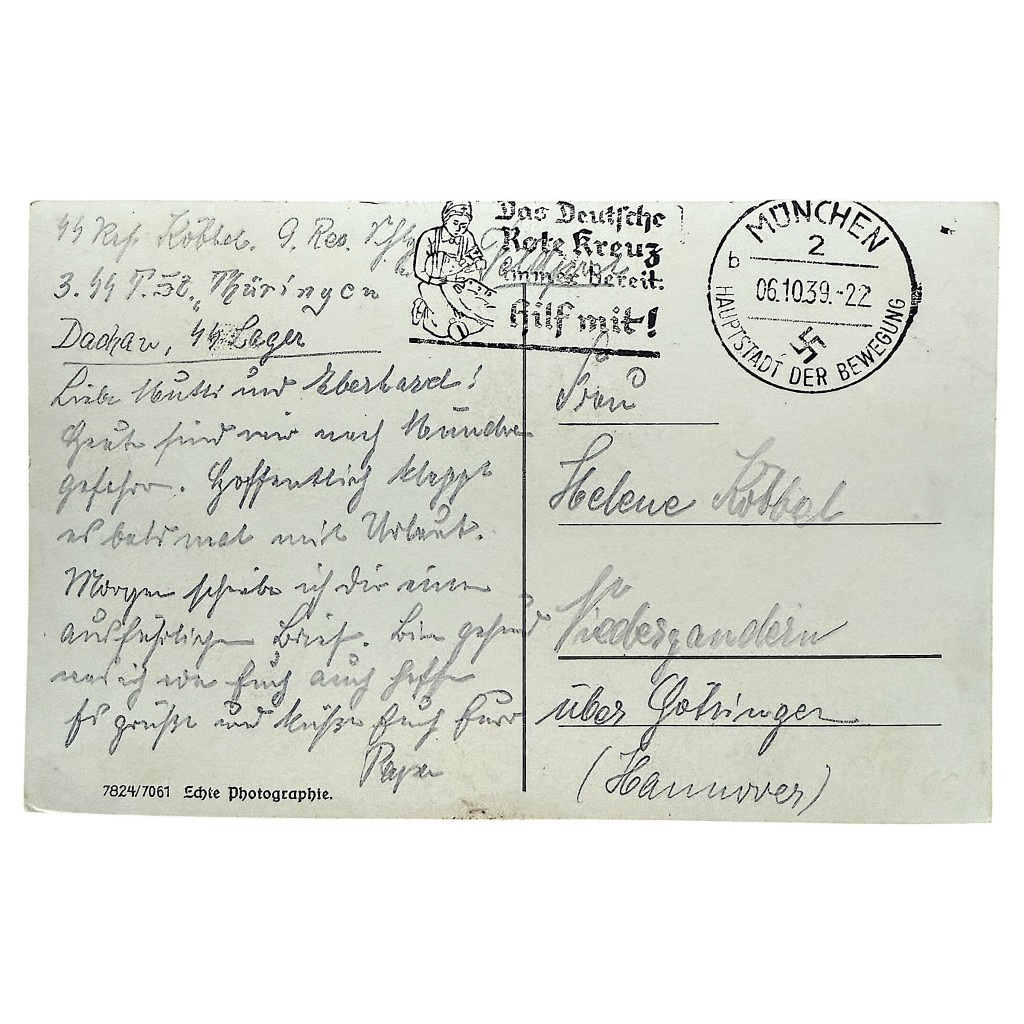 SS Köbbel. 9. Res.
3. SS T. St. "Thüringen
Dachau, SS Lager
Liebe Mutti und Eberhard!
Heute sind wir nach München
gefahren. Hoffentlich klappt
es bald mal mit Urlaub.
Morgen schreibe ich Dir einen
ausführlichen Brief. Bin gesund
was ich von Euch auch hoffe
Es grüßt und küßt Euch Euer
Papa
7824/7061 Echte Photographie.
Das Deutsche
Rote Kreuz
immer bereit.
Hilf mit!
MÜNCHEN
2
b
06.10.39.-22
HAUPTSTADT DER BEWEGUNG
Frau
Helene Köbbel
Niedergandern
über Göttingen
(Hannover)